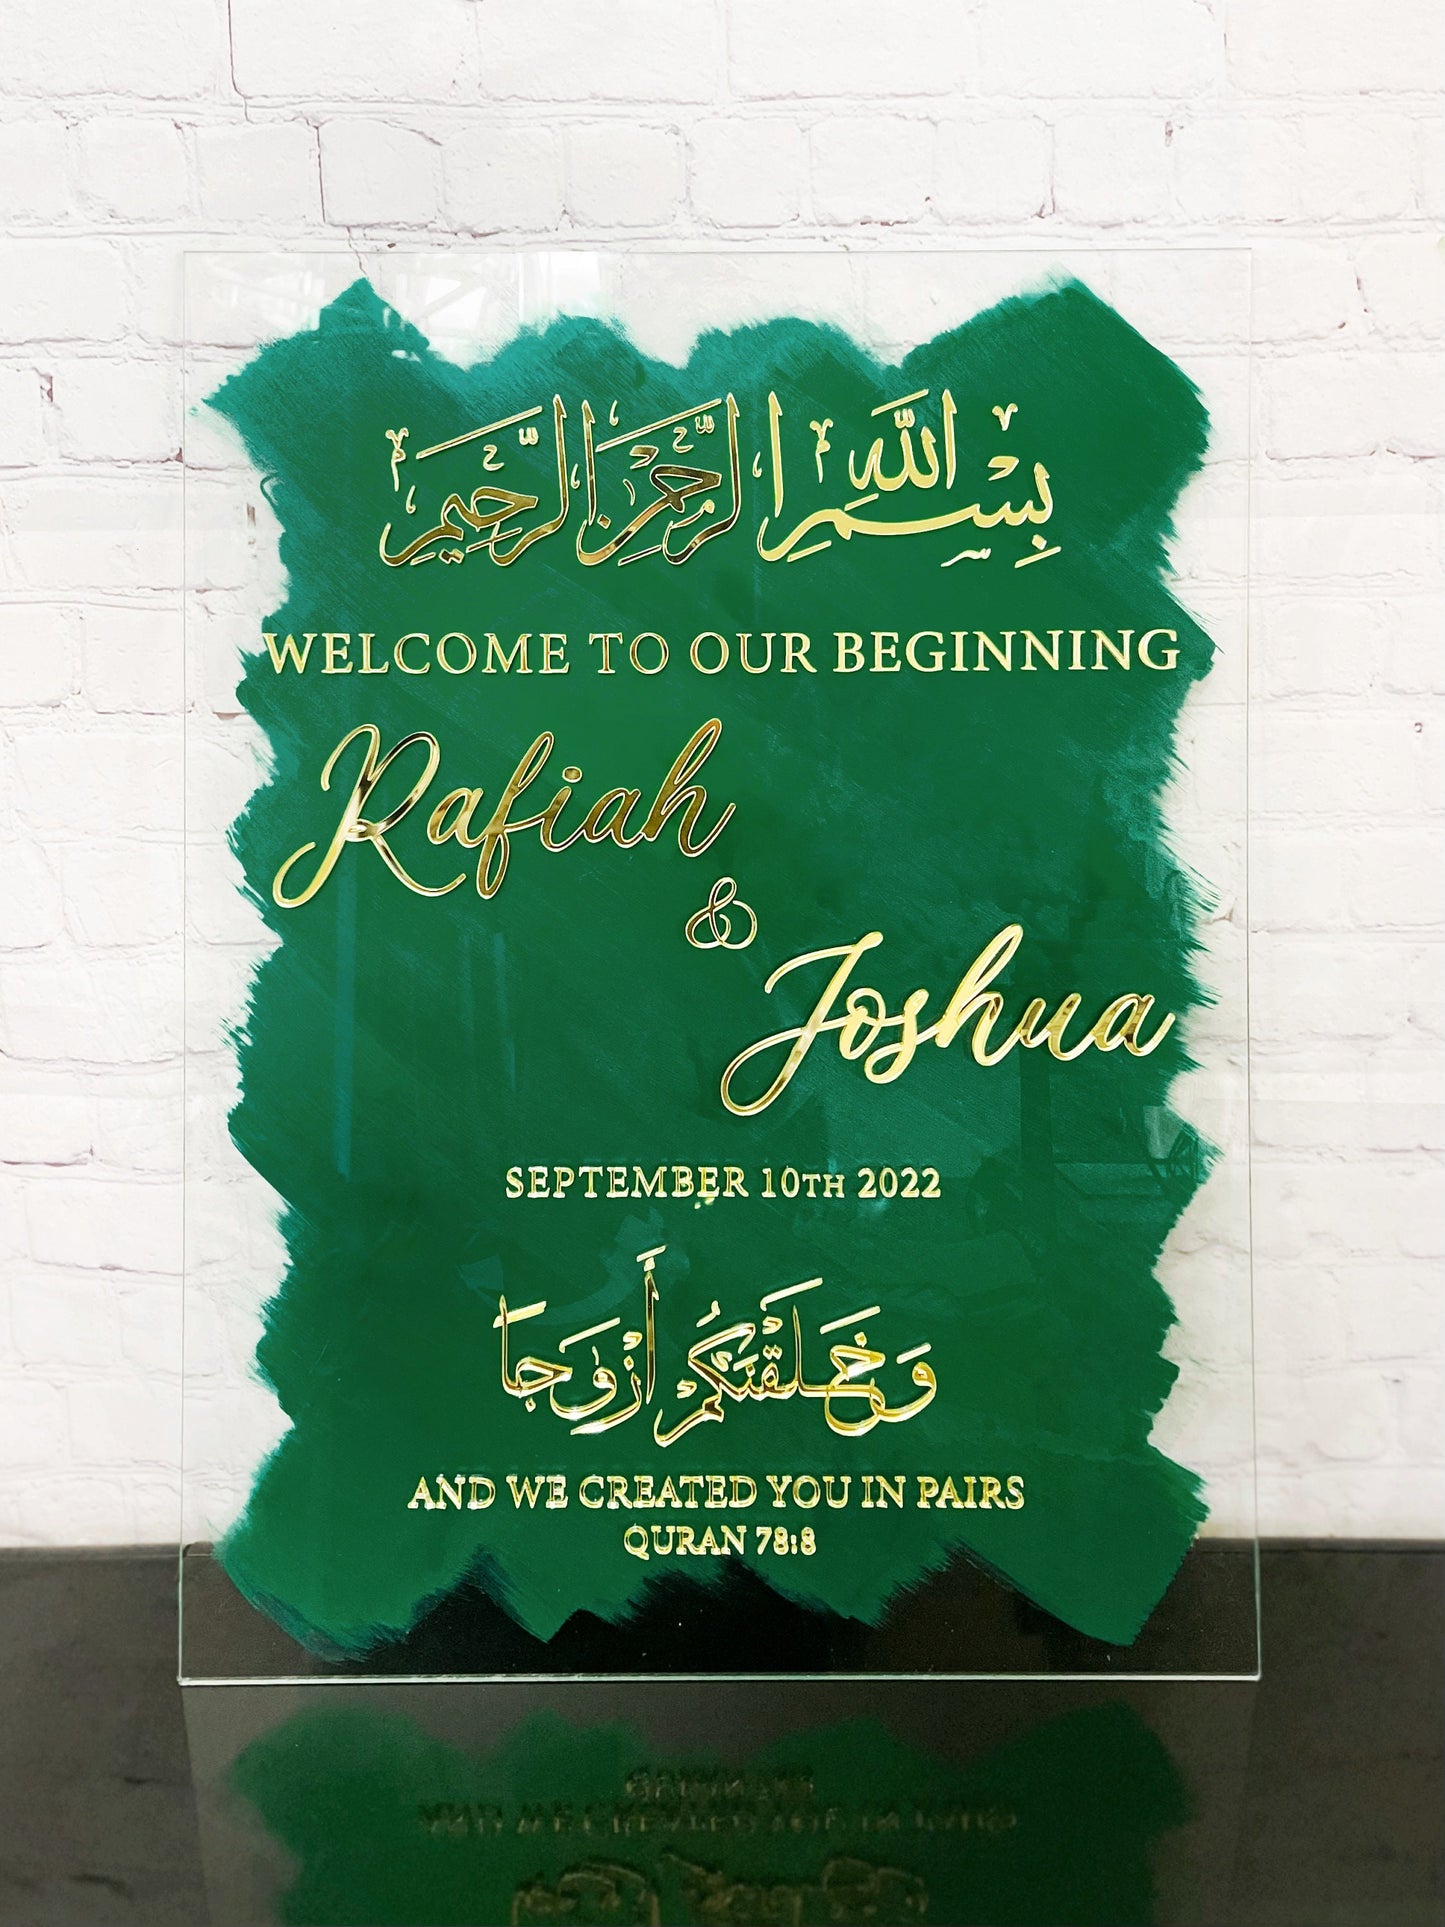 بِسْمِ اللَّهِ الرَّحْمَٰنِ الرَّحِيمِ
WELCOME TO OUR BEGINNING
Rafiah
&
Joshua
SEPTEMBER 10TH 2022
وَخَلَقْنَٰكُمْ أَزْوَٰجًا
AND WE CREATED YOU IN PAIRS
QURAN 78:8